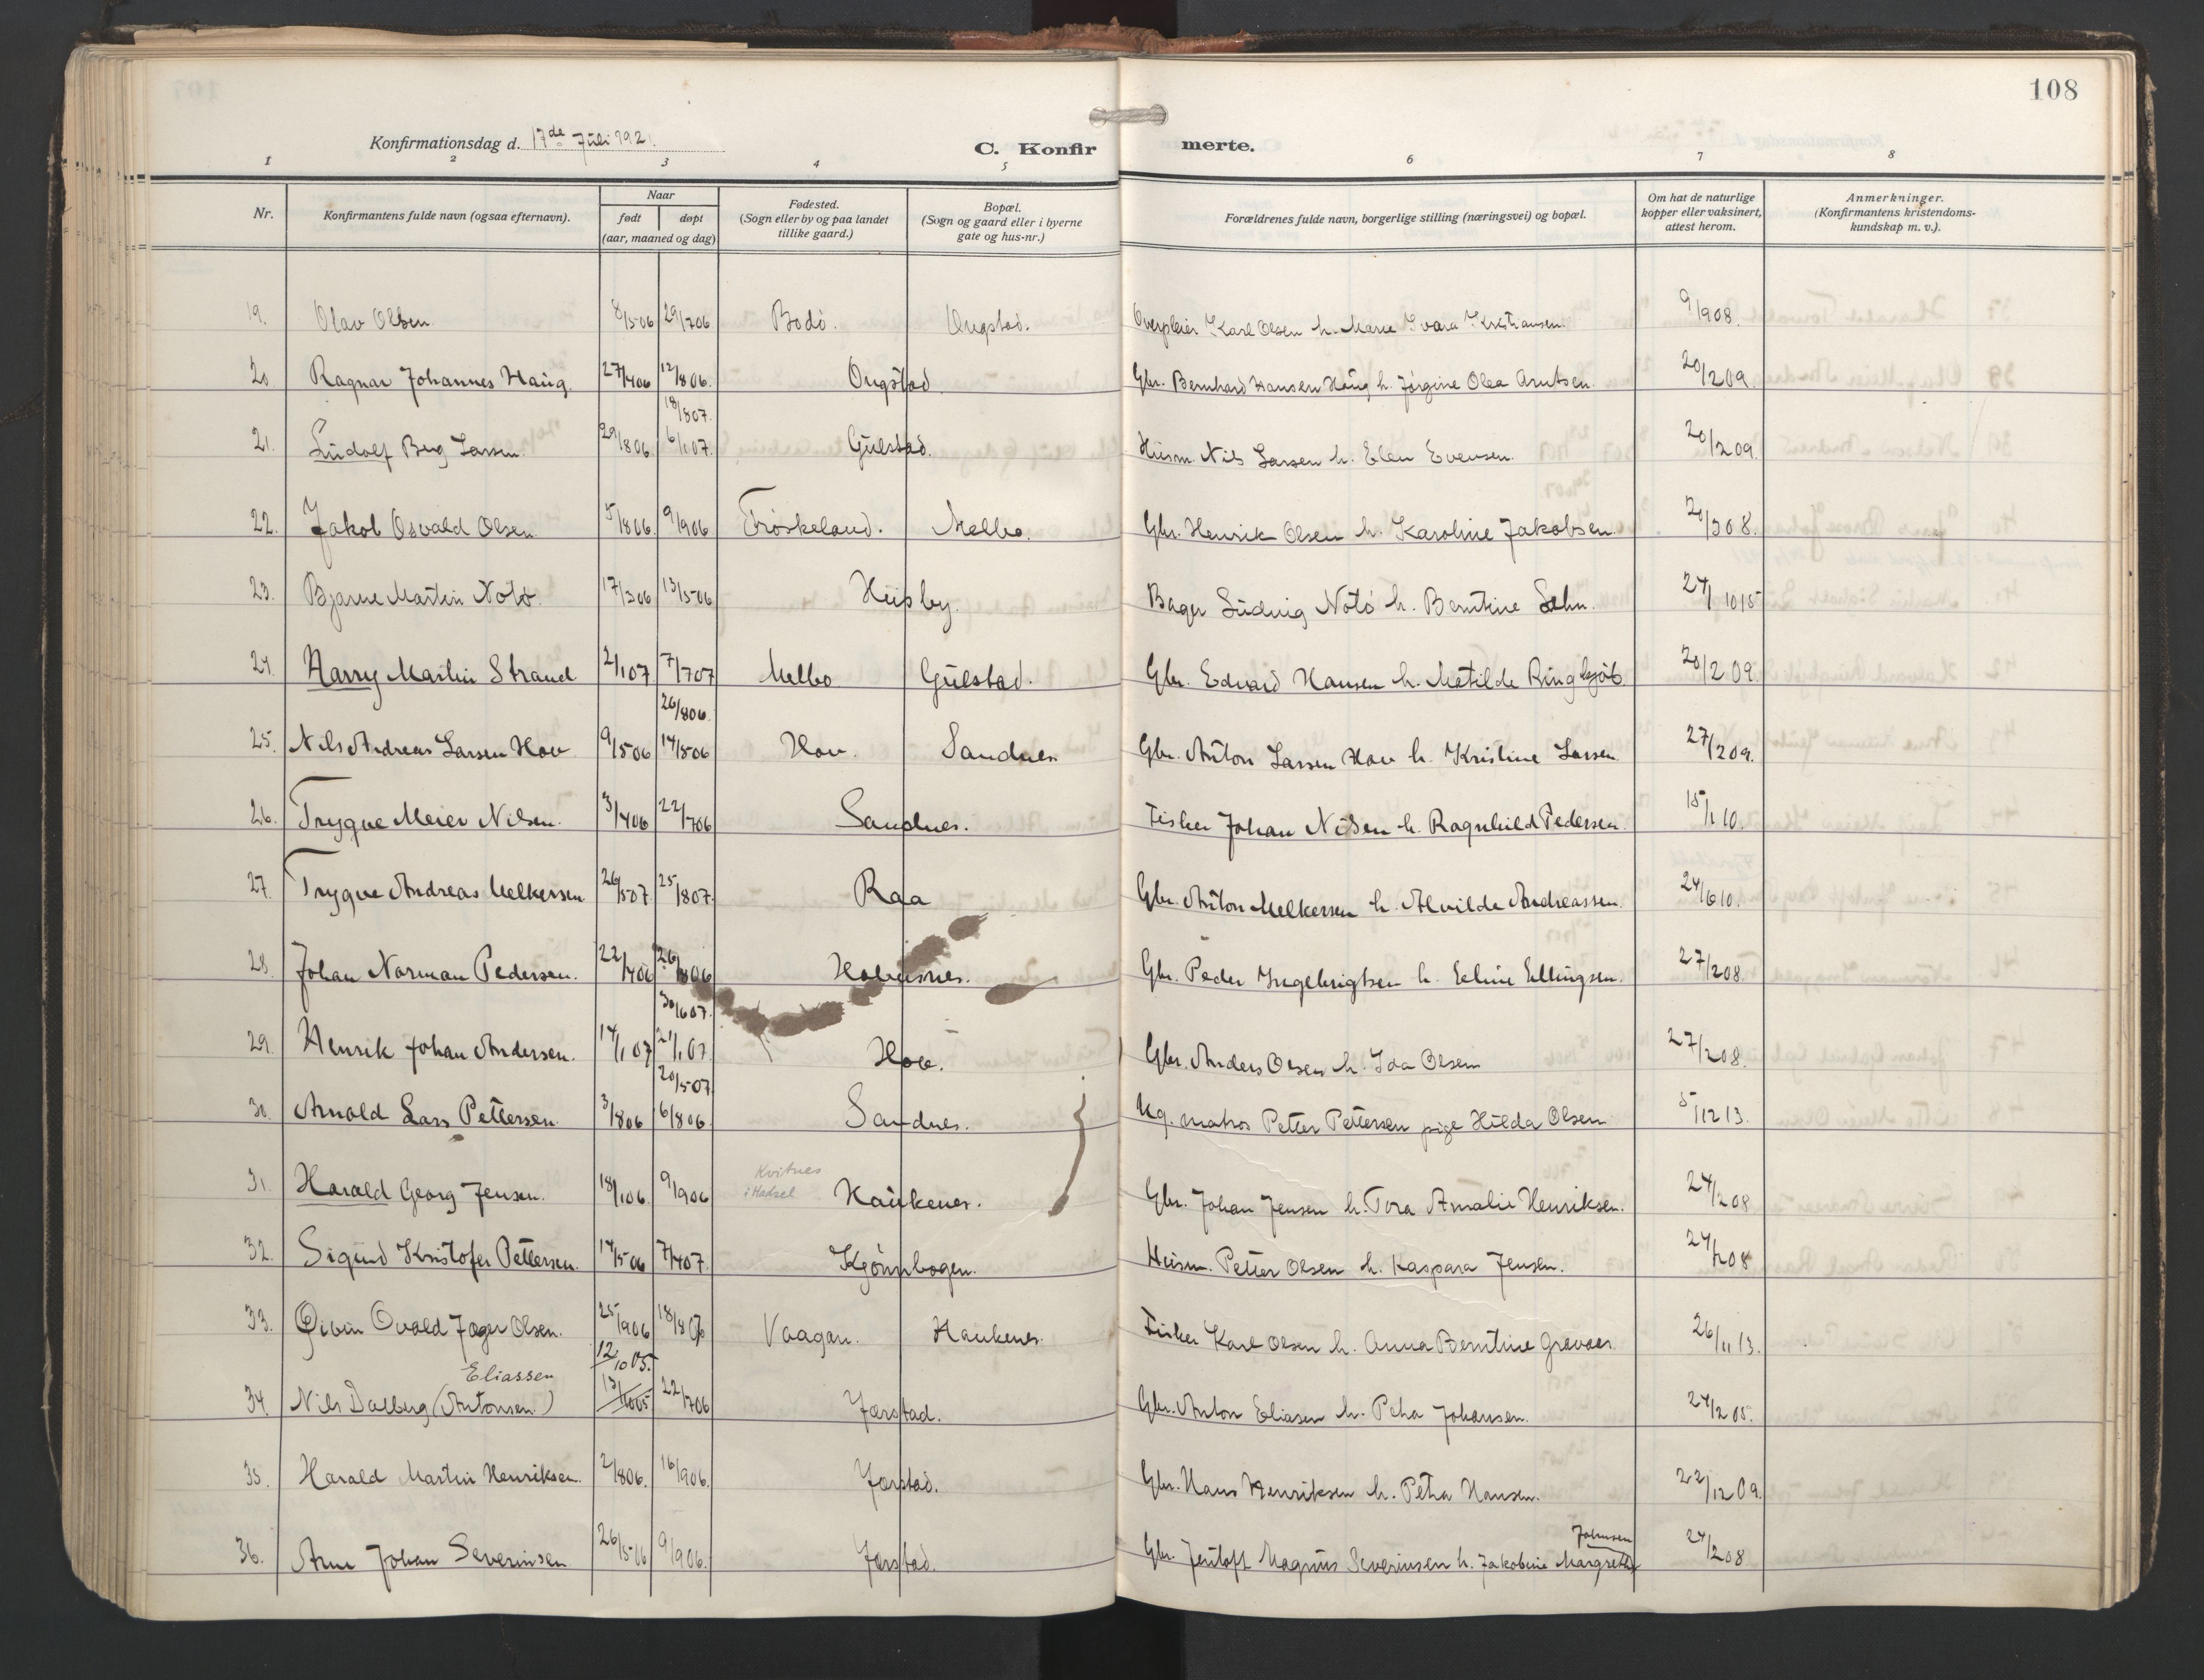 108
Konfirmationsdag d. 17de Juli 1921.
C. Konfirmerte.
1 2 3 4 5 6 7 8
Nr. | Konfirmantens fulde navn (ogsaa efternavn). | Naar født | døpt (aar, maaned og dag) | Fødested. (Sogn eller by og paa landet tillike gaard.) | Bopæl. (Sogn og gaard eller i byerne gate og hus-nr.) | Forældrenes fulde navn, borgerlige stilling (næringsvei) og bopæl. | Om hat de naturlige kopper eller vaksinert, attest herom. | Anmerkninger. (Konfirmantens kristendoms-kundskap m. v.).
19. Olav Olsen 8/5 06 29/7 06 Bodö. Ongstad. Karl Olsen h. Marie Kristiansen. 9/9 08.
20 Ragnar Johannes Haug. 27/4 06 12/8 06. Ongstad Gbr. Bernhard Hansen Haug h. Jørgine Olea Arntsen. 20/2 09.
18/8 07.
21. Ludolf Berg Larsen. 29/8 06 6/1 07. Gulstad. Husm. Nils Larsen h. Elen Evensen. 20/2 09.
22. Jakob Osvald Olsen. 5/8 06 9/9 06 Frøskeland. Melbo. Gbr. Henrik Olsen h. Karoline Jakobsen. 20/3 08.
23. Bjarne Martin Notö. 17/3 06 13/5 06 Husby. Bager Ludvig Notö h. Berntine Sehn. 24/10 15
24. Harry Martin Strand 2/1 07 7/7 07 Melbo Gulstad. Gbr. Edvard Hansen h. Matilde Ringkjöb. 20/2 09.
26/8 06.
25. Nils Andreas Larsen Hov 9/5 06 14/5 06 Hov. Sandnes Gbr. Anton Larsen Hov h. Kristine Larsen. 27/2 09.
26. Trygve Meier Nilsen. 3/4 06 22/7 06 Sandnes. Fisker Johan Nilsen h. Ragnhild Pedersen. 15/1 10.
27. Trygve Andreas Melkersen 26/5 07 25/8 07. Raa Gbr. Anton Melkersen h. Alvilde Andreassen. 24/6 10.
28. Johan Norman Pedersen. 22/4 06 26/8 06 Gbr. Peder Ingebrigtsen h. Eline Ellingsen. 27/2 08.
30/6 07.
29. Henrik Johan Andersen. 14/1 07 21/1 07. Hov. Gbr. Anders Olsen h. Ida Olsen 27/2 08.
20/5 07
30. Arnold Lars Pettersen. 3/8 06 6/8 06. Sandnes. Ug. matros Petter Pettersen pige Hilda Olsen 5/12 13.
Kvitnes
i Hadsel
31. Harald Georg Jensen. 18/1 06. 9/9 06 Haukenes. Gbr. Johan Jensen h. Tora Amalie Henriksen. 24/2 08
32. Sigurd Kristofer Pettersen. 14/5 06 7/4 07. Kjønnbogen. Husm. Petter Olsen h. Kaspara Jensen. 24/2 08
33. Øivin Ovald Jæger Olsen. 25/9 06 18/8 Vaagan. Haukenes. Fisker Karl Olsen h. Anna Berntine 26/11 13.
Eliassen 12/10 05.
34. Nils Dalberg (Antonsen) 22/7 06 Jørstad. Gbr. Anton Eliasen h. Petra Johansen. 24/2 05.
35. Harald Martin Henriksen. 2/8 06. 16/9 06. Jørstad. Gbr. Hans Henriksen h. Petra Hansen. 22/12 09.
Johnsen
36. Arne Johan Severinsen 26/5 06 9/9 06. Jørstad. Gbr. Jentoft Magnus Severinsen h. Jakobine Margrethe 24/2 08